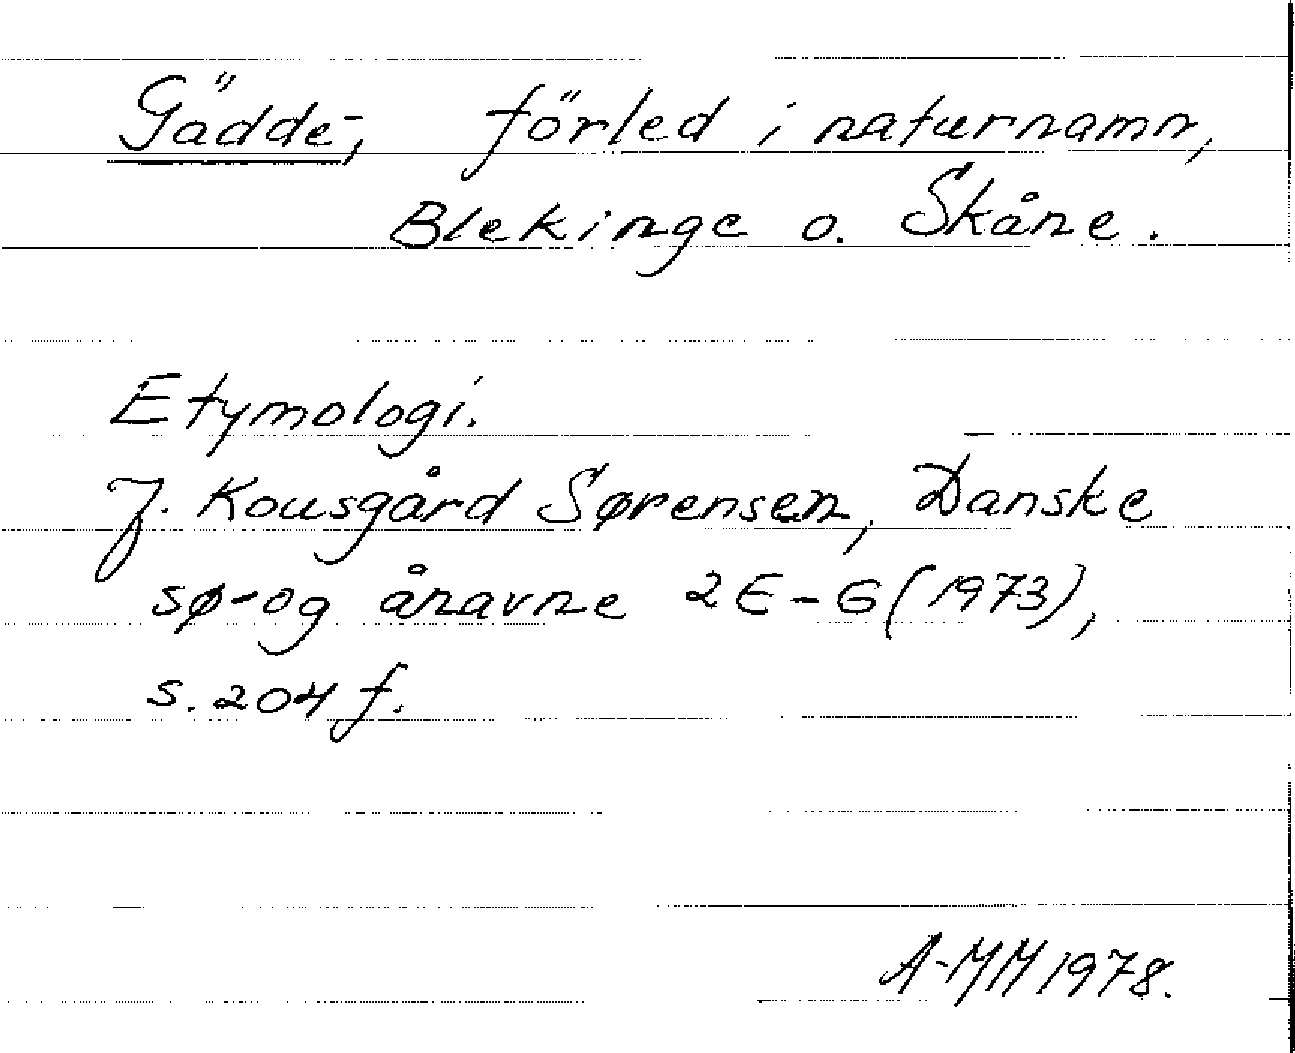 Gädde-, förled i naturnamn,
Blekinge o. Skåne.
Etymologi.
J. Kousgård Sørensen, Danske
sø-og ånavne 2 E-G (1973),
s. 204 f.
A-MM 1978.